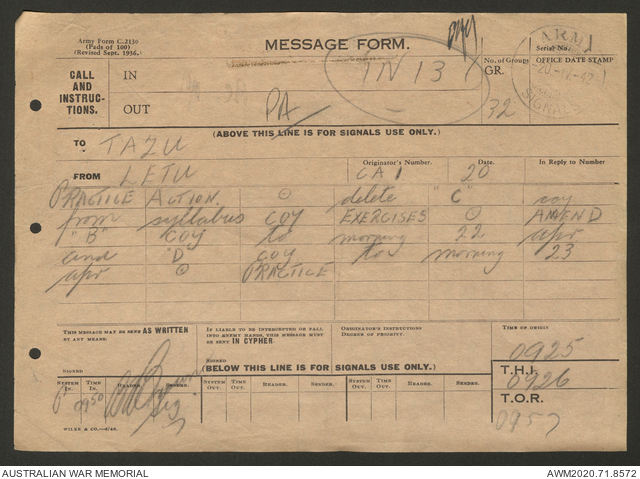 Army Form C.2130
(Pads of 100)
(Revised Sept. 1936.)
MESSAGE FORM.
Serial No.
CALL AND INSTRUCTIONS.
IN
IN 13
No. of Groups
GR.
32
OFFICE DATE STAMP
ARMY
20 IV 42
SIGNALS
OUT
PA
(ABOVE THIS LINE IS FOR SIGNALS USE ONLY.)
TO TAZU
FROM LETU
Originator's Number. Date. In Reply to Number
CA 1 20
PRACTICE ACTION. ⊙ delete "C" coy
from syllabus COY EXERCISES ⊙ AMEND
"B" COY to morning 22 apr
and "D" coy to morning 23
apr ⊙ PRACTICE
THIS MESSAGE MAY BE SENT AS WRITTEN BY ANY MEANS.
IF LIABLE TO BE INTERCEPTED OR FALL INTO ENEMY HANDS, THIS MESSAGE MUST BE SENT IN CYPHER.
ORIGINATOR'S INSTRUCTIONS DEGREE OF PRIORITY.
TIME OF ORIGIN
0925
SIGNED
SIGNED
(BELOW THIS LINE IS FOR SIGNALS USE ONLY.)
T.H.I.
0926
SYSTEM IN. TIME IN. READER. SENDER. SYSTEM OUT. TIME OUT. READER. SENDER. SYSTEM OUT. TIME OUT. READER. SENDER.
0950
T.O.R.
0957
WILKE & CO.—4/40.
AUSTRALIAN WAR MEMORIAL
AWM2020.71.8572